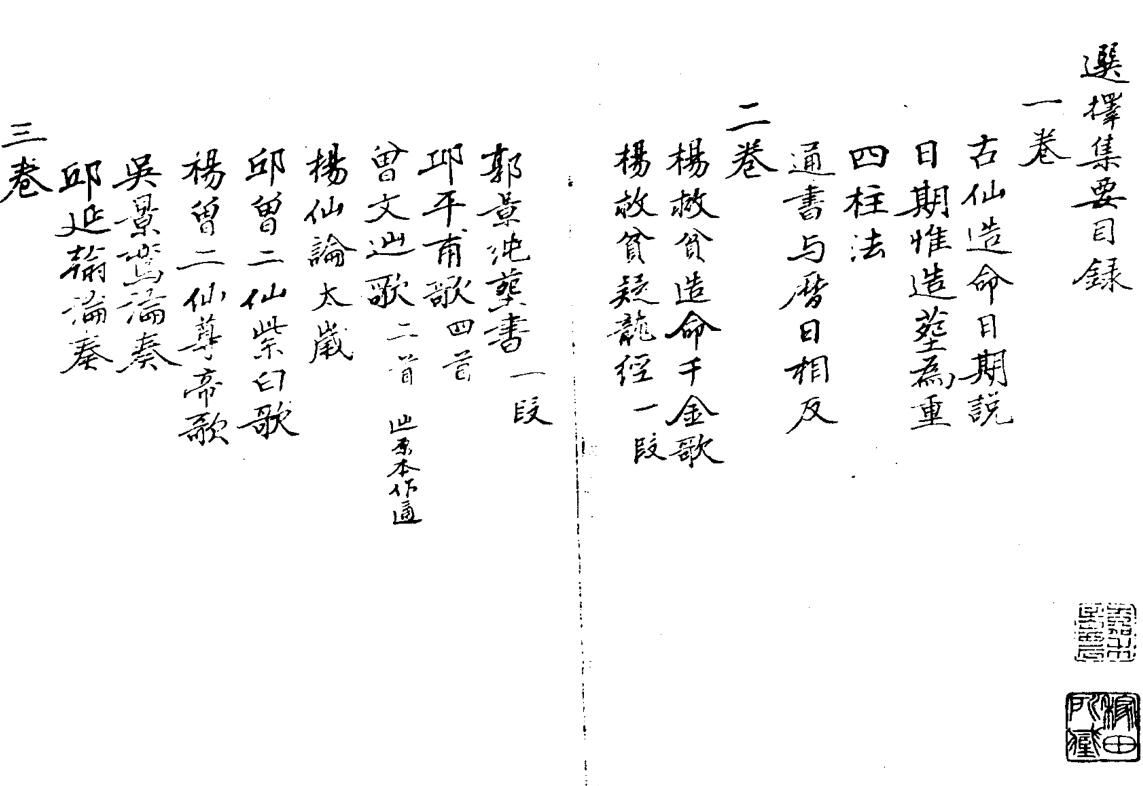 選擇集要目録
一卷
古仙造命日期説
日期惟造塟為重
四柱法
通書与暦日相反
二卷
楊救貧造命千金歌
楊救貧疑龍經一段
郭景純塟書一段
邱平甫歌四首
曾文辿歌二首 辿原本作遄
楊仙論太歲
邱曾二仙紫白歌
楊曾二仙尊帝歌
吳景鸞論奏
邱延翰論奏
三卷